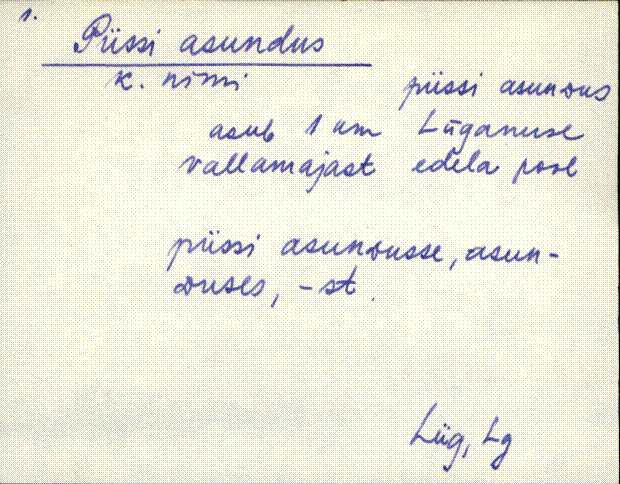 1.
Püssi asundus
k. nimi püssi asunᴅus
asub 1 km Lüganuse
vallamajast edela pool
püssi asunᴅusse, asun-
ᴅuses, -st.
Lüg, Lg